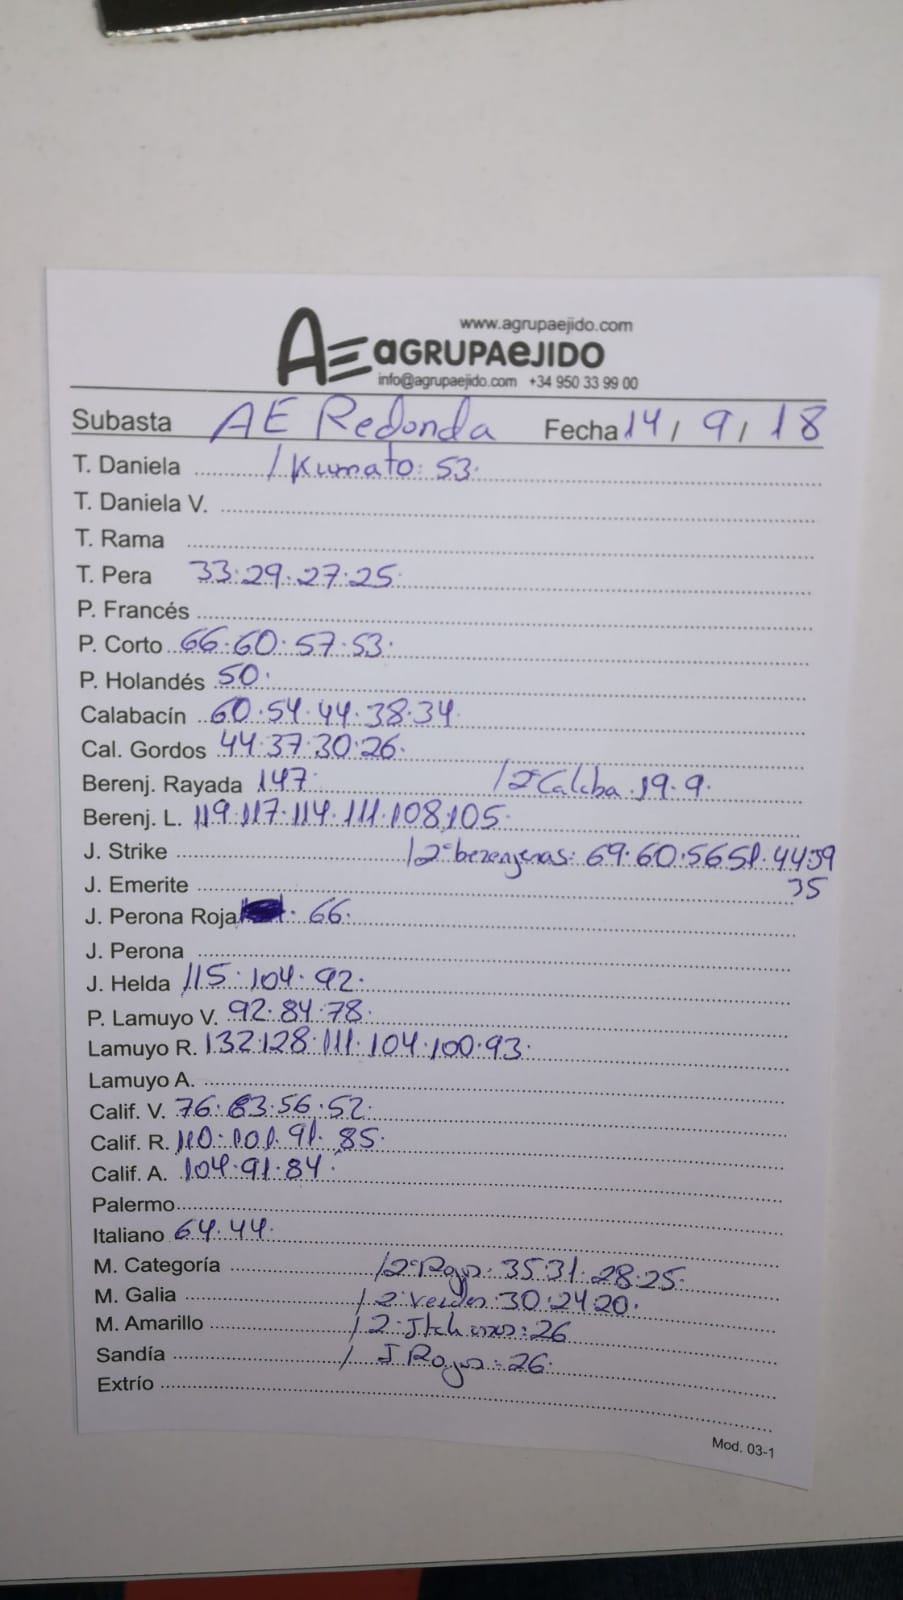 www.agrupaejido.com
AE aGRUPAeJIDO
info@agrupaejido.com +34 950 33 99 00
Subasta AE Redonda Fecha 14/9/18
T. Daniela / Kumato: 53.
T. Daniela V.
T. Rama
T. Pera 33.29.27.25.
P. Francés
P. Corto 66.60.57.53.
P. Holandés 50.
Calabacín 60.54.44.38.34.
Cal. Gordos 44.37.30.26.
Berenj. Rayada 147. / 2ª Calaba. 19.9.
Berenj. L. 119.117.114.111.108.105.
J. Strike / 2ª berenjenas: 69.60.56.51.44.39
J. Emerite 35
J. Perona Roja . 66.
J. Perona
J. Helda 115.104.92.
P. Lamuyo V. 92.84.78.
Lamuyo R. 132.128.111.104.100.93.
Lamuyo A.
Calif. V. 76.63.56.52.
Calif. R. 110.101.91.85.
Calif. A. 104.91.84.
Palermo
Italiano 64.44.
M. Categoría / 2ª Rojos: 35.31.28.25.
M. Galia / 2ª Verdes 30.24.20.
M. Amarillo / 2ª : 26
Sandía / J Rojos: 26.
Extrío
Mod. 03-1